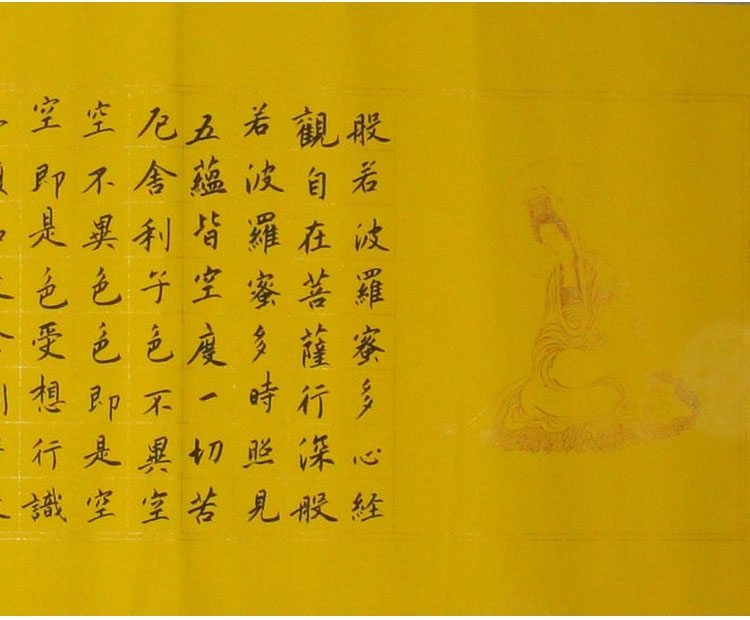 般若波羅蜜多心経
觀自在菩薩行深般
若波羅蜜多時照見
五蘊皆空度一切苦
厄舍利子色不異空
空不異色色即是空
空即是色受想行識